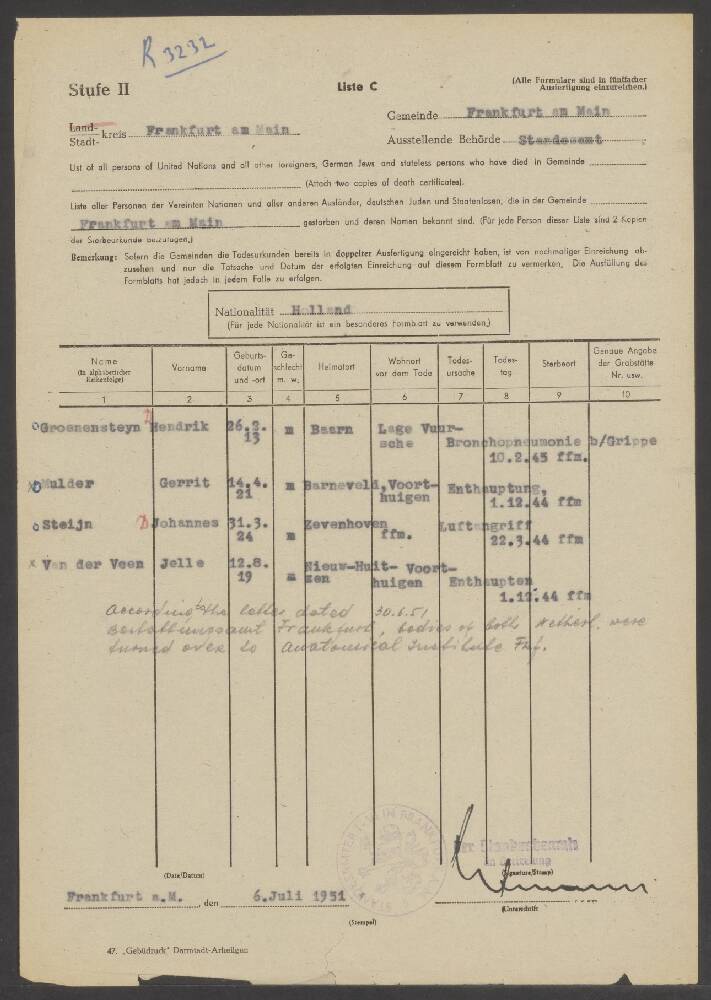 R 3232
Stufe II
Liste C
(Alle Formulare sind in fünffacher
Ausfertigung einzureichen.)
Gemeinde Frankfurt am Main
Land-
Stadt- kreis Frankfurt am Main
Ausstellende Behörde Standesamt
List of all persons of United Nations and all other foreigners, German Jews and stateless persons who have died in Gemeinde
(Attach two copies of death certificates).
Liste aller Personen der Vereinten Nationen und aller anderen Ausländer, deutschen Juden und Staatenlosen, die in der Gemeinde
Frankfurt am Main gestorben und deren Namen bekannt sind. (Für jede Person dieser Liste sind 2 Kopien
der Sterbeurkunde beizufügen.)
Bemerkung: Sofern die Gemeinden die Todesurkunden bereits in doppelter Ausfertigung eingereicht haben, ist von nochmaliger Einreichung ab-
zusehen und nur die Tatsache und Datum der erfolgten Einreichung auf diesem Formblatt zu vermerken. Die Ausfüllung des
Formblatts hat jedoch in jedem Falle zu erfolgen.
Nationalität Holland
(Für jede Nationalität ist ein besonderes Formblatt zu verwenden.)
Name
(in alphabetischer
Reihenfolge)
Vorname
Geburts-
datum
und -ort
Ge-
schlecht
m. w.
Heimatort
Wohnort
vor dem Tode
Todes-
ursache
Todes-
tag
Sterbeort
Genaue Angabe
der Grabstätte
Nr. usw.
1 2 3 4 5 6 7 8 9 10
Groenensteyn Hendrik 26.2. m Baarn Lage Vuur-
13 sche Bronchopneumonie b/Grippe
10.2.45 ffm.
Mulder Gerrit 14.4. m Barneveld, Voort- Enthauptung,
21 huigen 1.12.44 ffm
Steijn Johannes 31.3. Zevenhoven Luftangriff
24 m ffm. 22.3.44 ffm
x Van der Veen Jelle 12.8. Nieuw-Huit- Voort-
19 m zen huigen Enthaupten
1.12.44 ffm
According to the letter dated 30.6.51
Bestattungsamt Frankfurt, bodies of both Netherl. were
turned over to Anatomical Institute Ffm.
Der Standesbeamte
(Date/Datum)
(Signature/Stamp)
Frankfurt a.M. , den 6.Juli 1951
(Unterschrift)
(Stempel)
47. „Gebüdruck" Darmstadt-Arheilgen